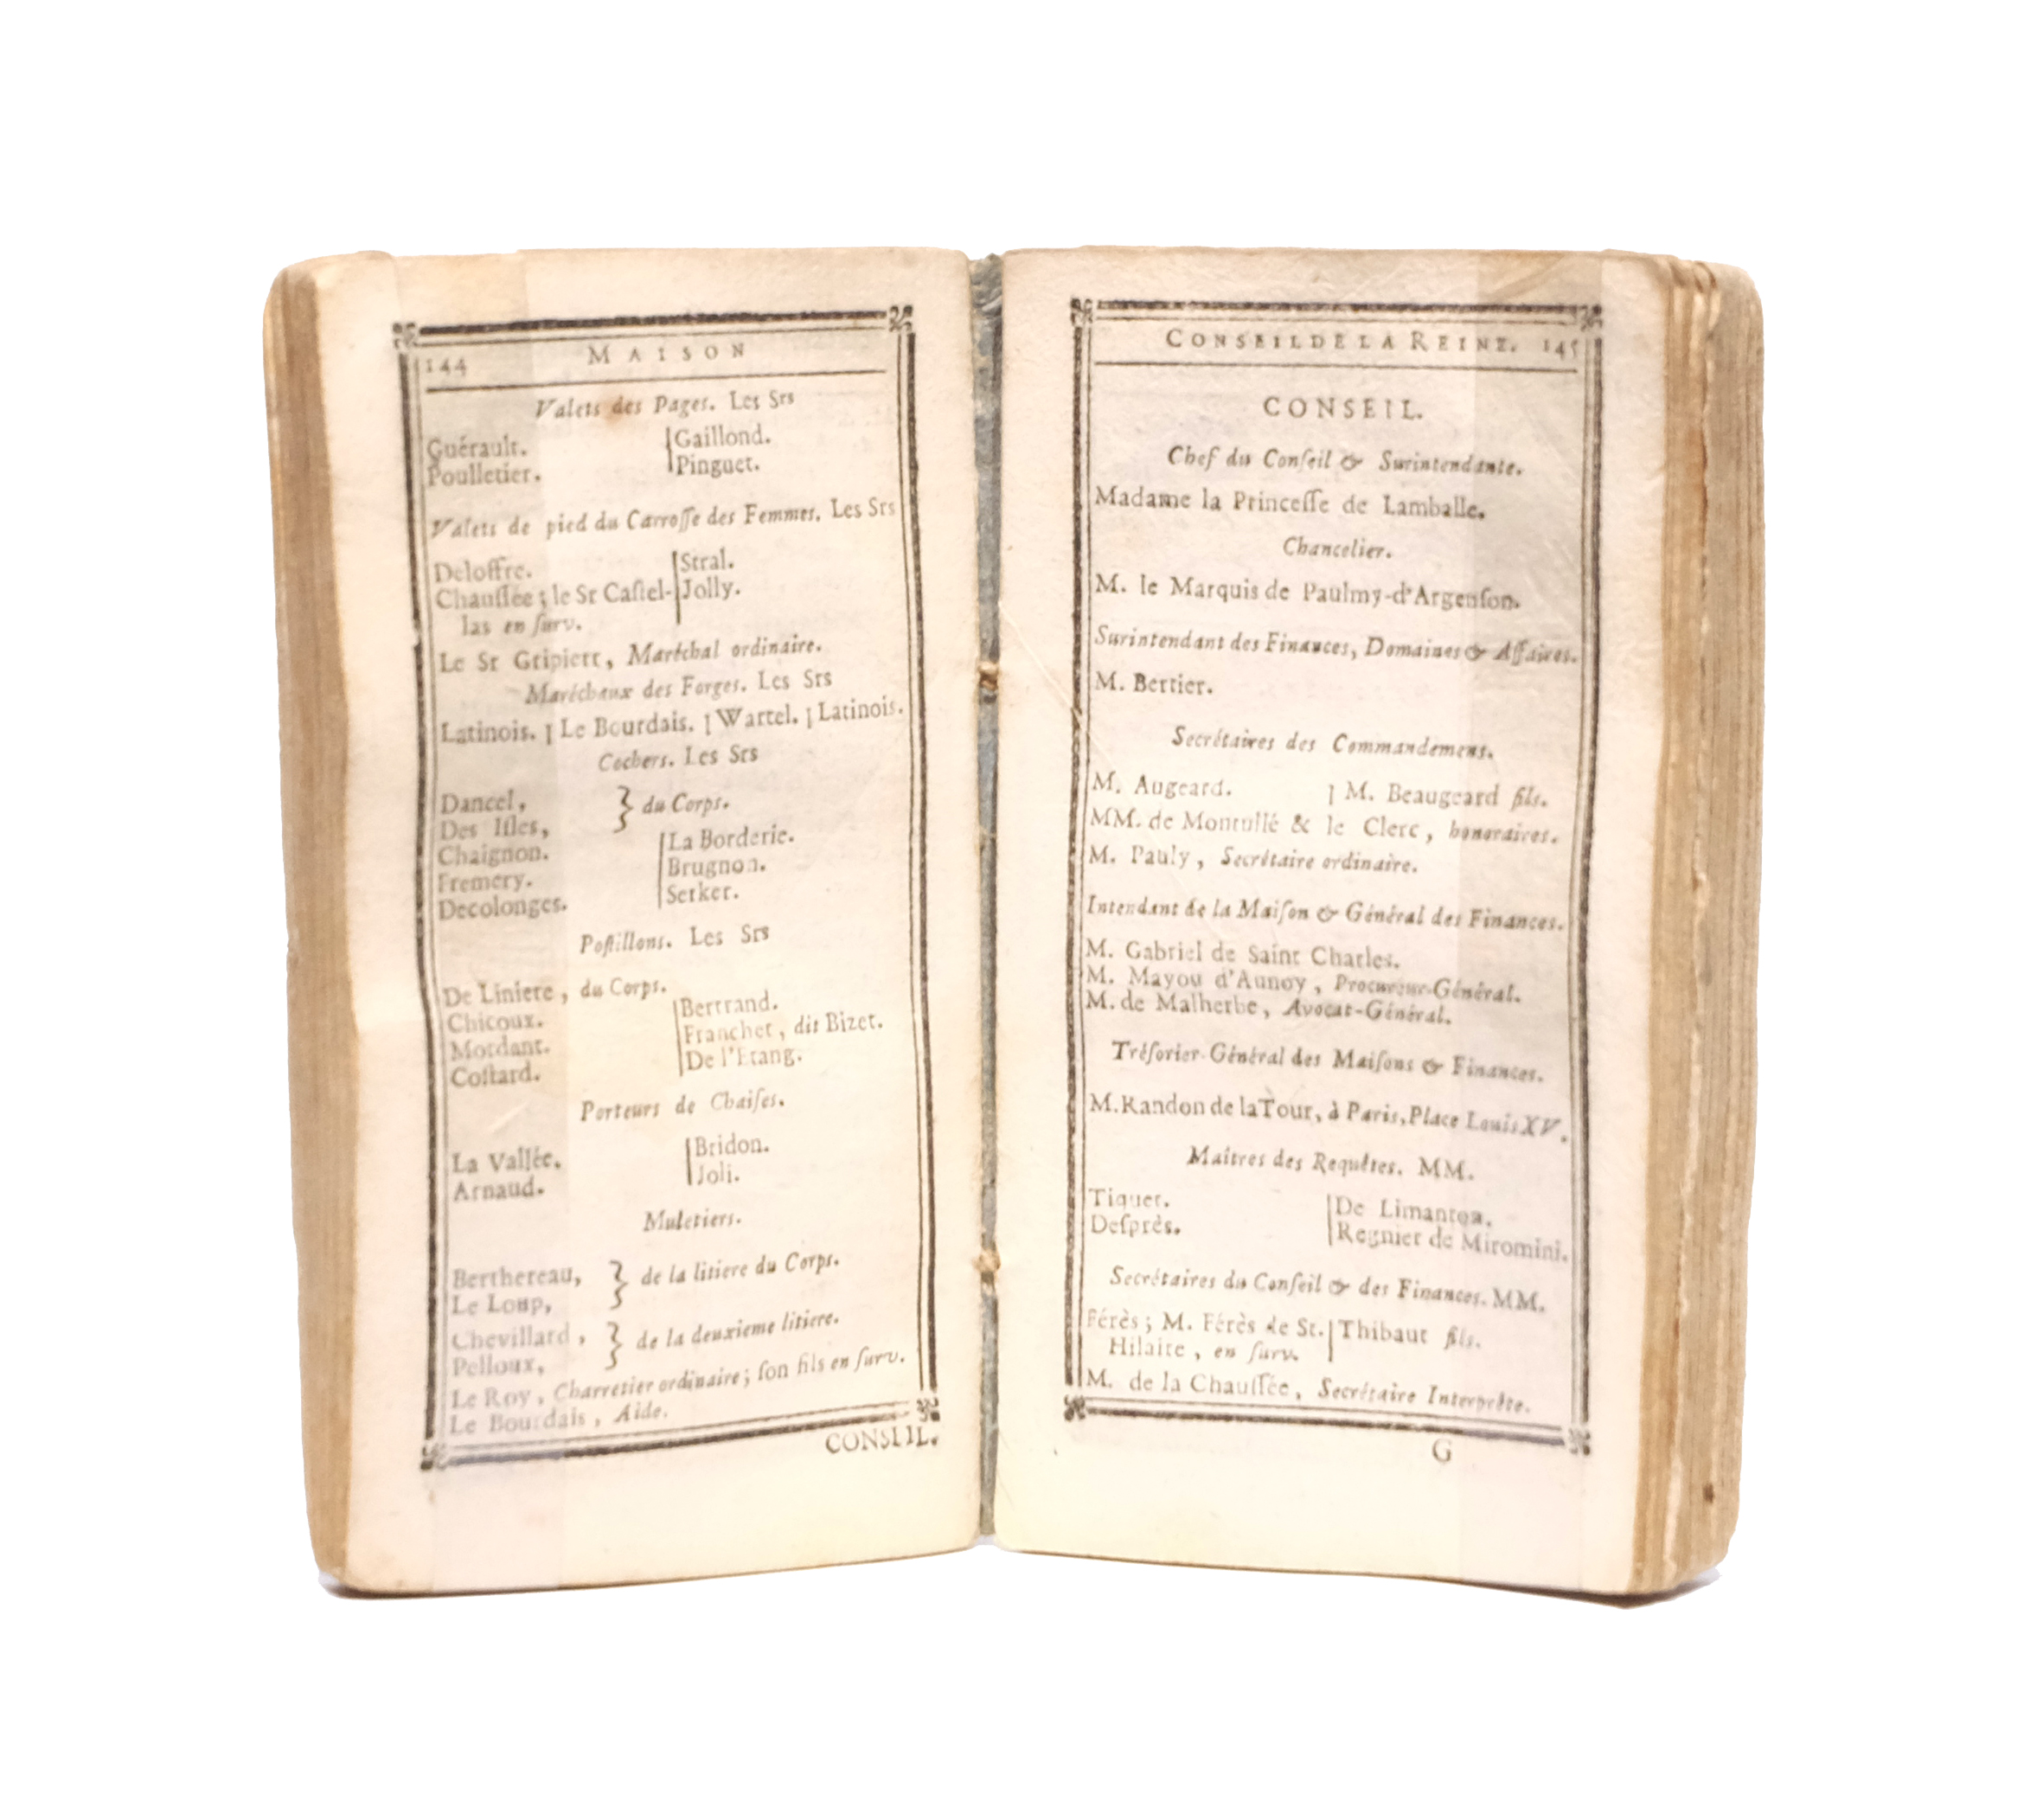 144 MAISON
Valets des Pages. Les Srs
Guérault. | Gaillond.
Poulletier. | Pinguet.
Valets de pied du Carroſſe des Femmes. Les Srs
Deloffre. | Stral.
Chauſſée ; le Sr Caſtel- | Jolly.
las en ſurv.
Le Sr Gripiert, Maréchal ordinaire.
Maréchaux des Forges. Les Srs
Latinois. | Le Bourdais. | Wartel. | Latinois.
Cochers. Les Srs
Dancel, } du Corps.
Des Iſles,
Chaignon. | La Borderie.
Fremery. | Brugnon.
Decolonges. | Serker.
Poſtillons. Les Srs
De Liniere, du Corps.
Chicoux. | Bertrand.
Mordant. | Franchet, dit Bizet.
Coſtard. | De l'Etang.
Porteurs de Chaiſes.
La Vallée. | Bridon.
Arnaud. | Joli.
Muletiers.
Berthereau, } de la litiere du Corps.
Le Loup,
Chevillard, } de la deuxieme litiere.
Pelloux,
Le Roy, Charretier ordinaire; ſon fils en ſurv.
Le Bourdais, Aide.
CONSEIL.
CONSEIL DE LA REINE. 145
CONSEIL.
Chef du Conſeil & Surintendante.
Madame la Princeſſe de Lamballe.
Chancelier.
M. le Marquis de Paulmy-d'Argenſon.
Surintendant des Finances, Domaines & Affaires.
M. Bertier.
Secrétaires des Commandemens.
M. Augeard. | M. Beaugeard fils.
MM. de Montullé & le Clerc, honoraires.
M. Pauly, Secrétaire ordinaire.
Intendant de la Maiſon & Général des Finances.
M. Gabriel de Saint Charles.
M. Mayou d'Aunoy, Procureur-Général.
M. de Malherbe, Avocat-Général.
Tréſorier-Général des Maiſons & Finances.
M. Randon de la Tour, à Paris, Place Louis XV.
Maîtres des Requêtes. MM.
Tiquet. | De Limanton.
Deſprès. | Regnier de Miromini.
Secrétaires du Conſeil & des Finances. MM.
Férès ; M. Férès de St. | Thibaut fils.
Hilaire, en ſurv.
M. de la Chauſſée, Secrétaire Interprête.
G